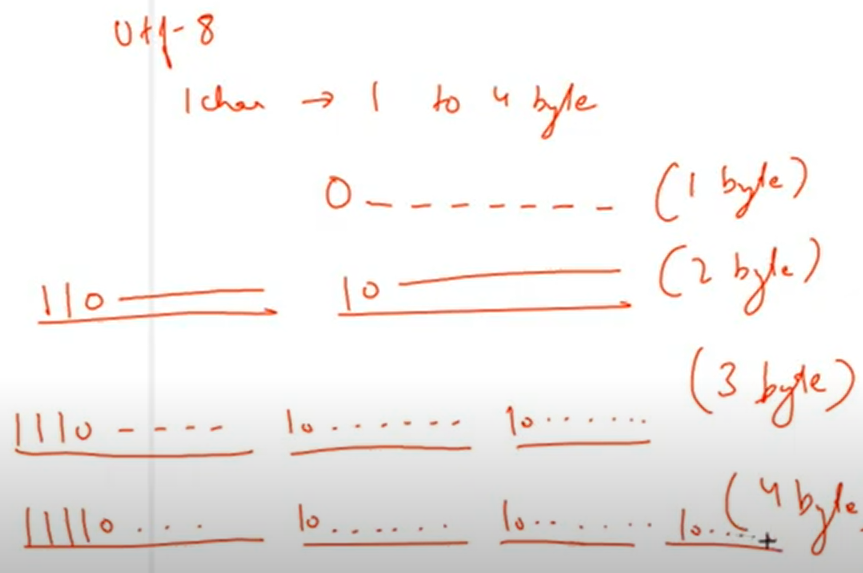 Utf-8
1 char → 1 to 4 byte
0 - - - - - - - (1 byte)
110 —— 10 —— (2 byte)
1110 - - - - 10 . . . . . . 10 . . . . . . (3 byte)
11110 . . . 10 . . . . . . 10 . . . . . . 10 . . . . . . (4 byte